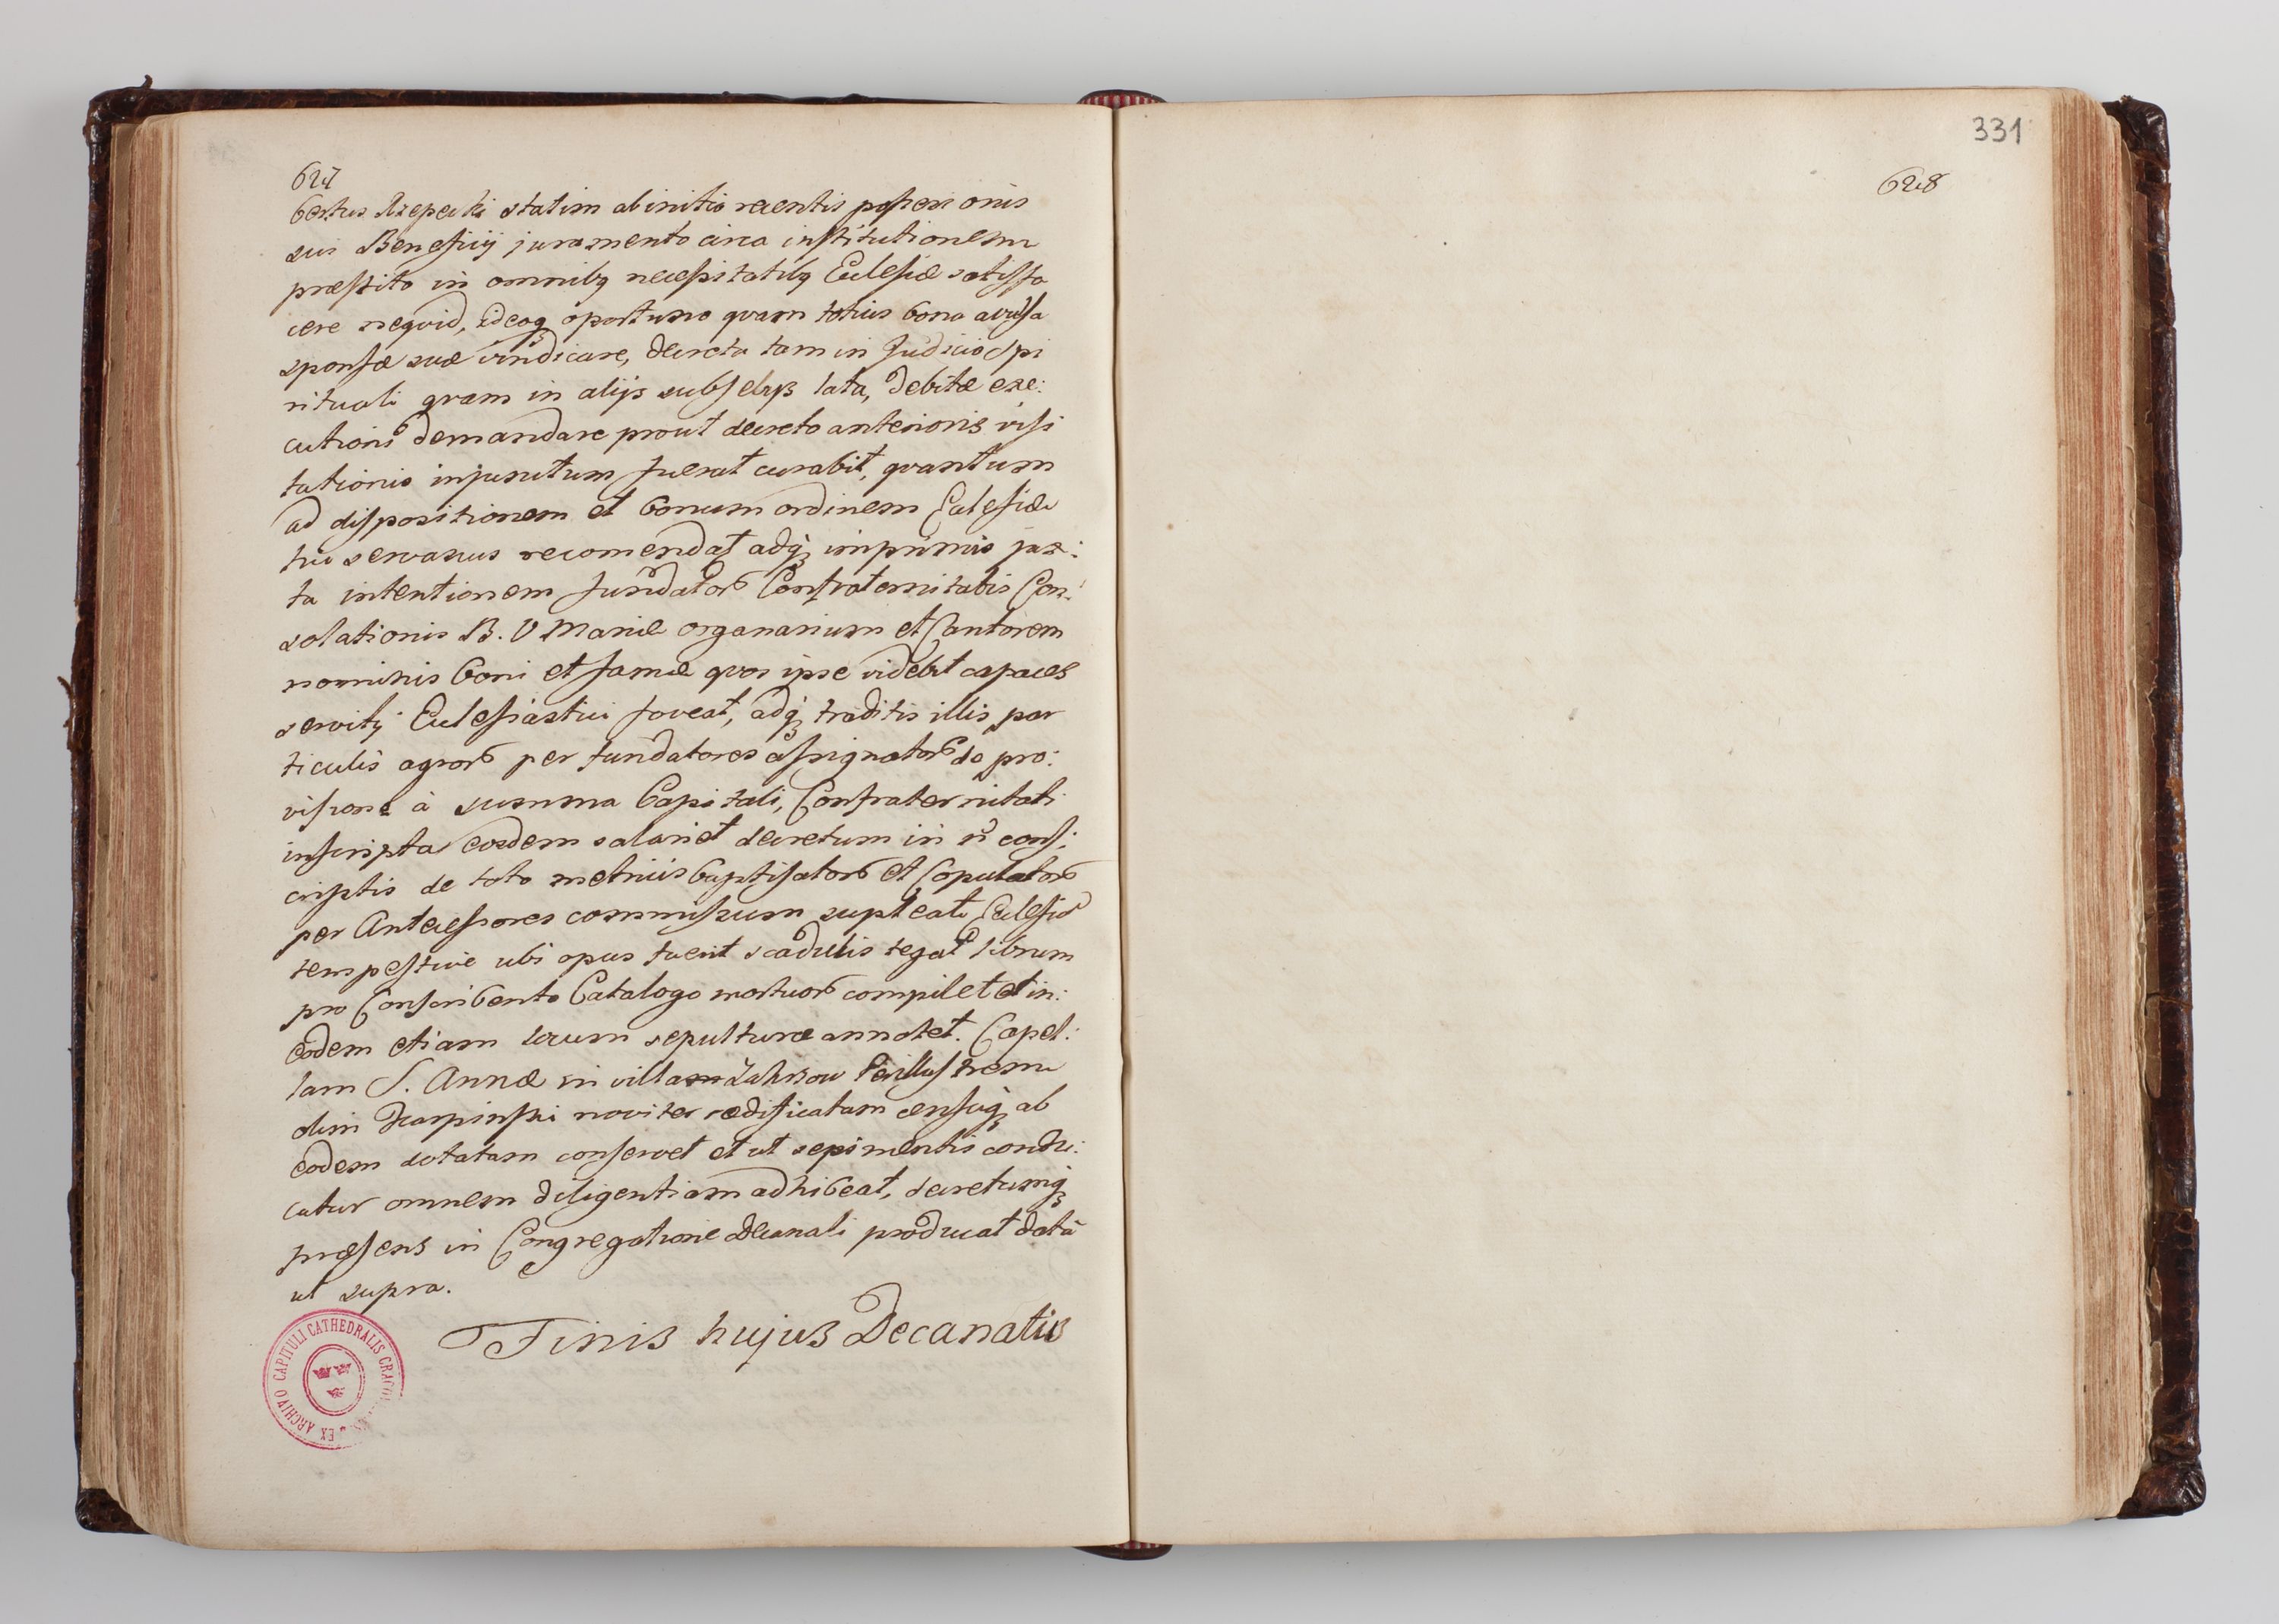 627
bertus Rzepecki statim ab initio recentis possessionis
sui Beneficij juramento circa institutionem
præstito in omnibꝫ necessitatibꝫ Ecclesiæ satisfa
cere nequid, ideoqꝫ oportuno quam totius bona avulsa
sponsæ suæ vindicare, decreta tam in Judicio Spi
rituali quam in alijs subselijs lata, debitæ exe:
cutioni demandare prout decreto anterioris visi
tationis injunctum fuerat curabit, quantum
ad dispositionem et bonum ordinem Ecclesiæ
recomendat adqꝫ imprimis jux:
ta intentionem fundatorum Confraternitatis Con:
solationis B. V Mariæ organarium et Cantorem
nominis boni et famæ quos ipse videbit capaces
servitij Ecclesiastici foveat, adqꝫ traditis illis par
ticulis agrorum per fundatores assignatorum de pro:
visione à summa Capitali, Confraternitati
inscripta eosdem salariet decretum in non cons:
criptis de toto metricis baptisatorum et Copulatorum
per Antecessores commissum supleat Ecclesiam
tempestive ubi opus fuerit scadulis tegat librum
pro Conscribento Catalogo mortuorum compilet et in:
eodem etiam locum sepulturæ annotet. Capel:
lam S. Annæ in villa Perillustrem
olim Karpinski noviter ædificatam censuqꝫ ab
eodem dotatam conservet et ut sepimentis condu:
catur omnem diligentiam adhibeat, decretumqꝫ
præsens in Congregatione Decanali producat datũ
ut supra.
Finis hujus Decanatus
EX ARCHIVO CAPITULI CATHEDRALIS
331
628